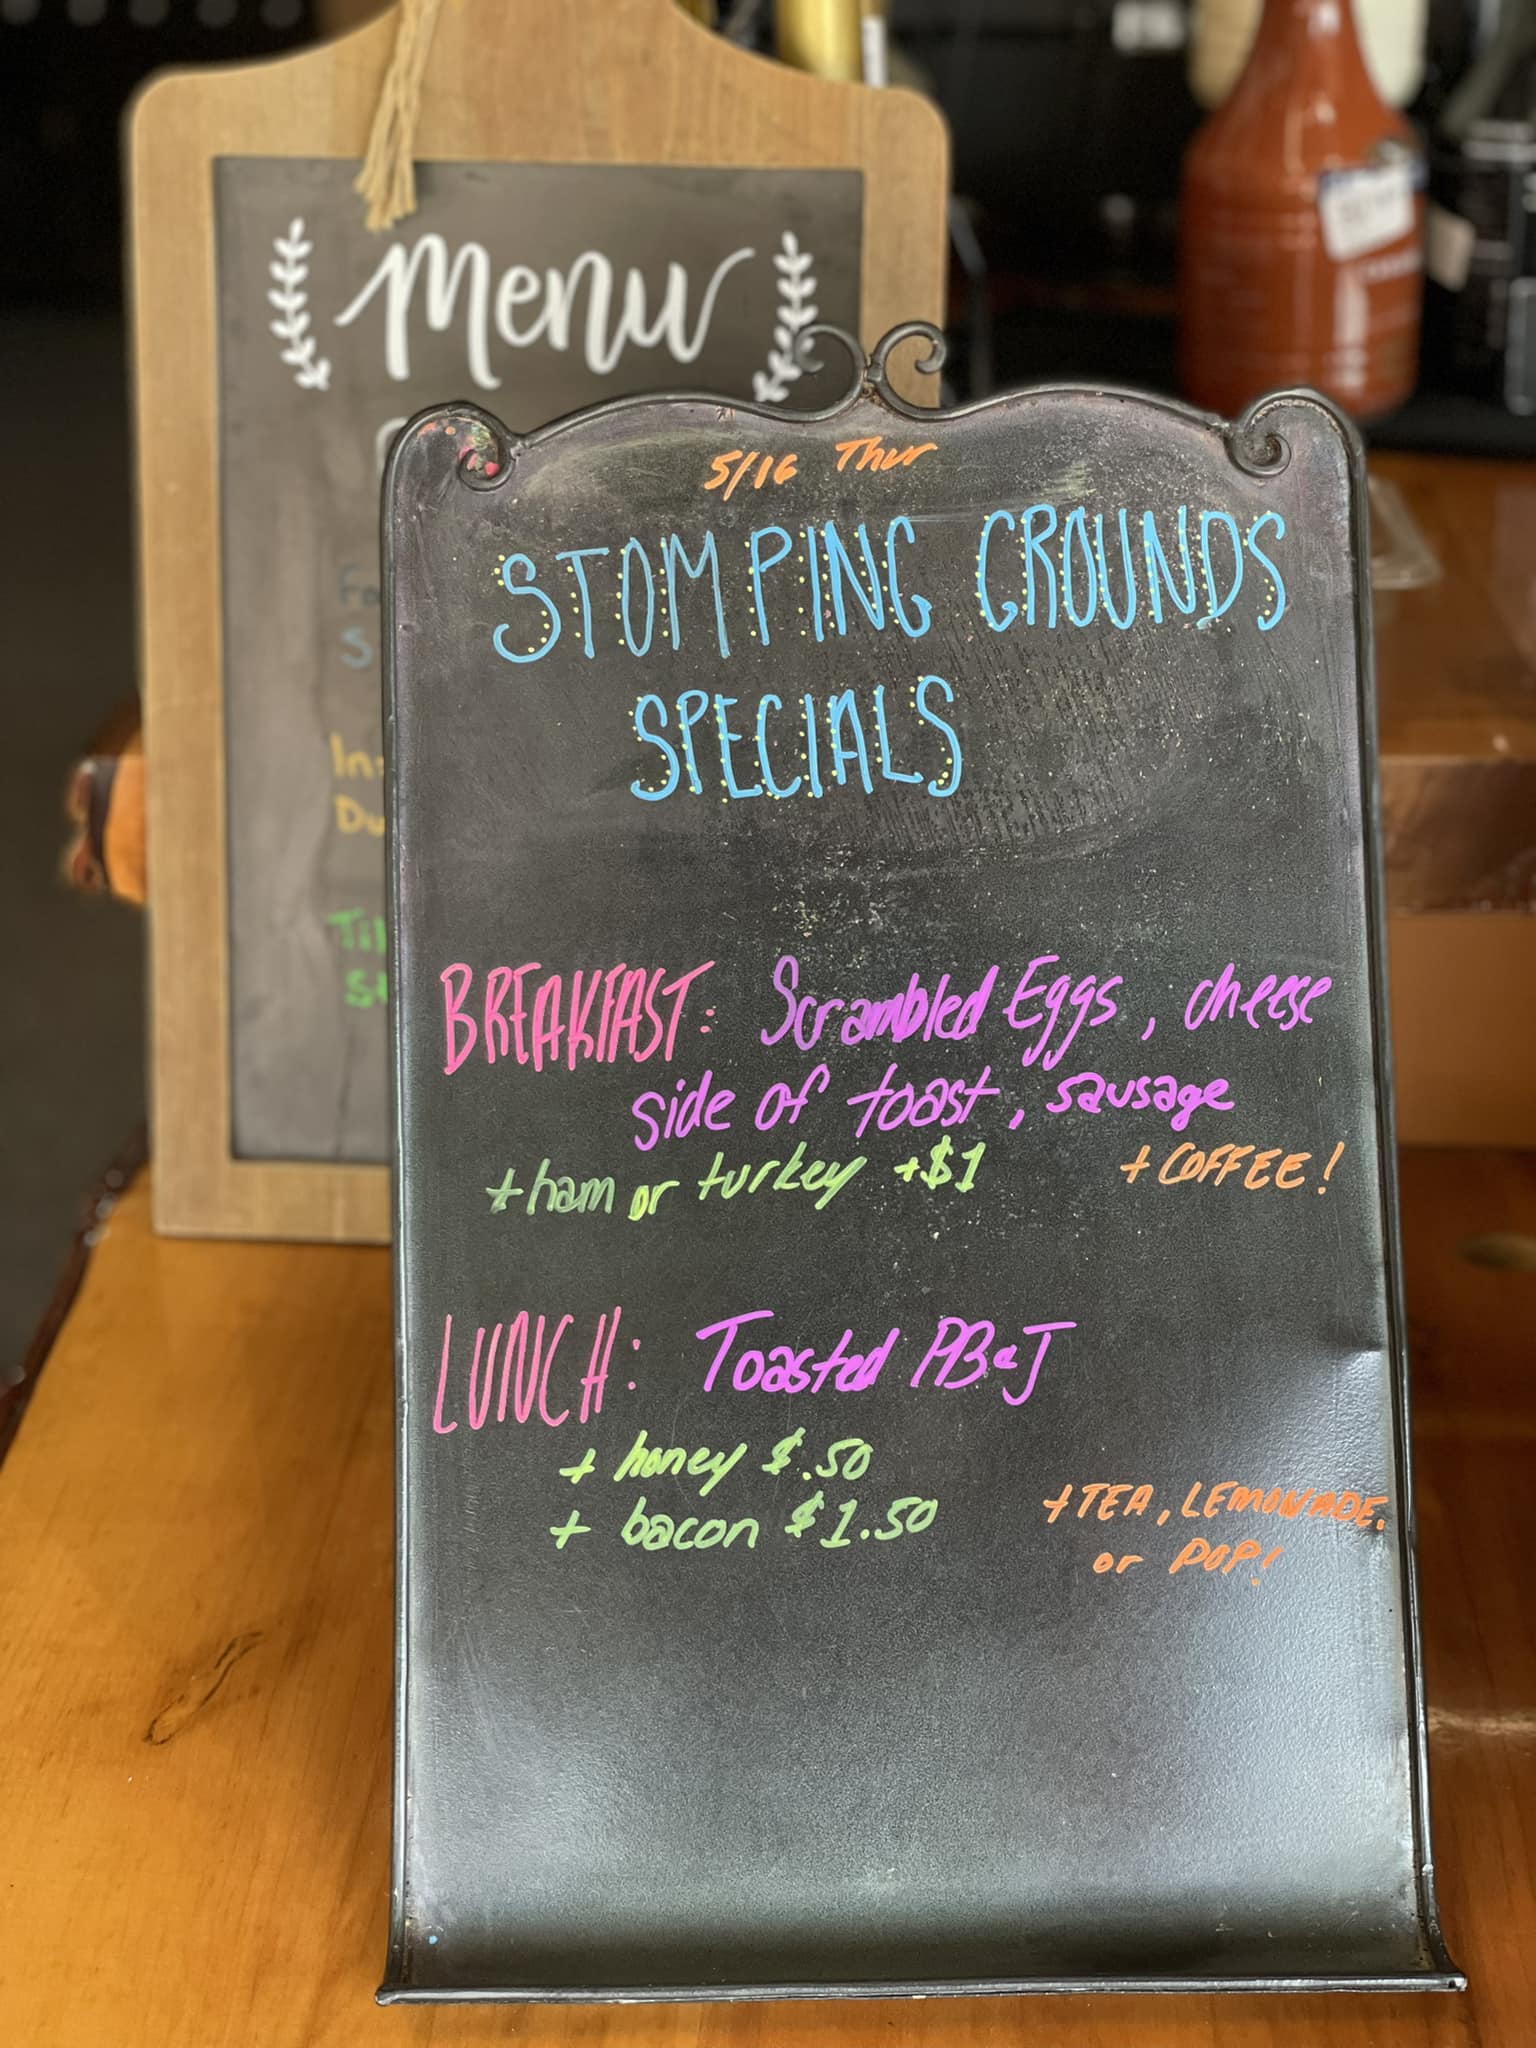 Menu
5/16 Thur
STOMPING GROUNDS
SPECIALS
BREAKFAST: Scrambled Eggs, cheese
side of toast, sausage
+ham or turkey +$1
+COFFEE!
LUNCH: Toasted PB&J
+ honey $.50
+ bacon $1.50
+TEA, LEMONADE,
or POP!